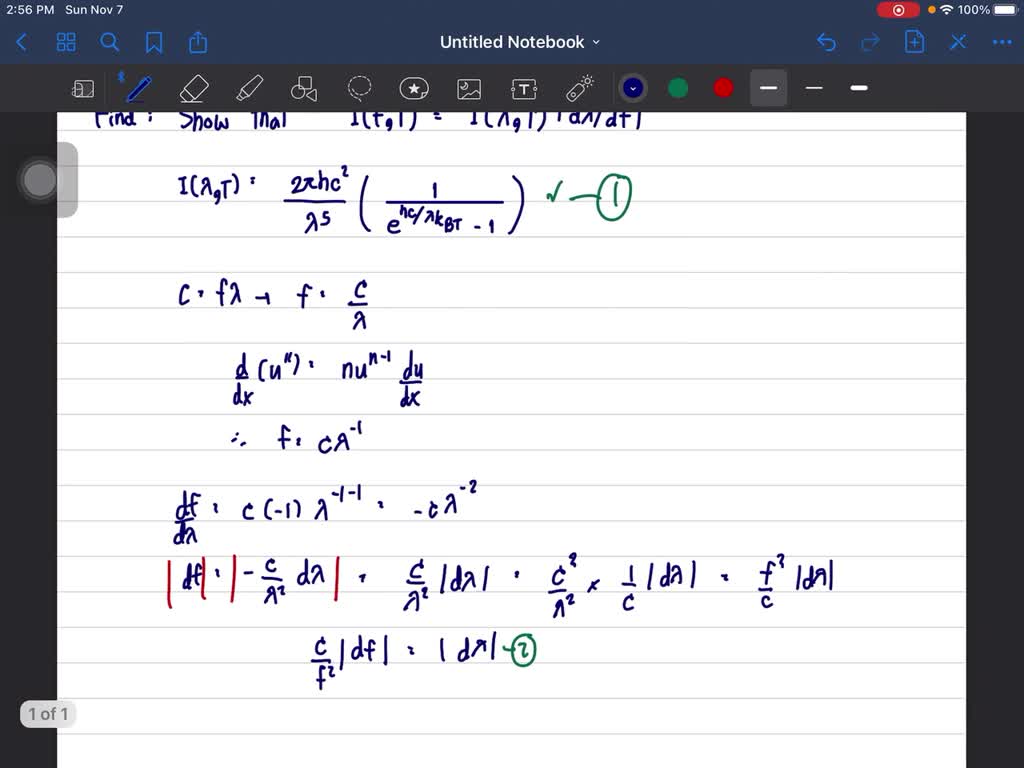 2:56 PM Sun Nov 7 100%
Untitled Notebook
Find : Show That I(f,T) = I(λ,T) |dλ/df|
I(λ,T) = 2πhc² / λ⁵ ( 1 / e^(hc/λk_BT) - 1 ) ✓ — ①
c = fλ → f = c/λ
d/dx (uⁿ) = nuⁿ⁻¹ du/dx
∴ f = cλ⁻¹
df/dλ = c(-1) λ⁻¹⁻¹ = -cλ⁻²
|df| = |- c/λ² dλ| = c/λ² |dλ| = c²/λ² × 1/c |dλ| = f²/c |dλ|
c/f² |df| = |dλ| - ②
1 of 1